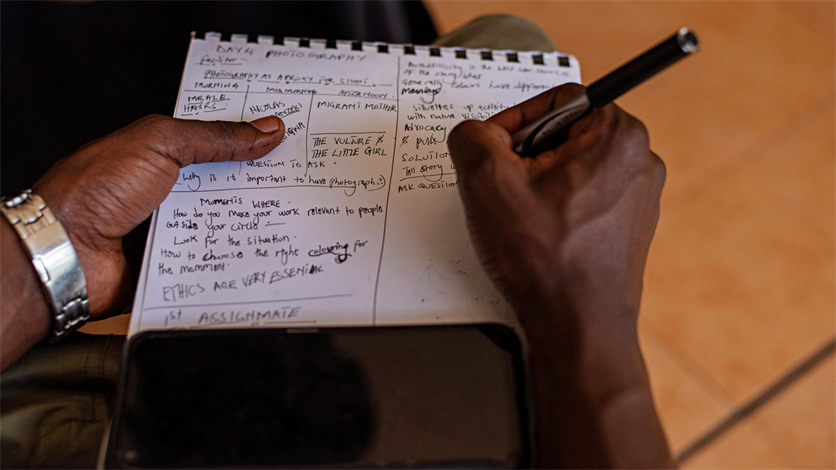 DAY 4 PHOTOGRAPHY
facilitor -
PHOTOGRAPHY AS A PROXY FOR SIGHT
MORNING
MIDMORNING
AFTERNOON
NICOLAS
MIGRANT MOTHER
THE VULTURE &
THE LITTLE GIRL
QUESTION TO ASK .
Why is it important to have photograph
MOMENTS WHERE -
How do you make your work relevant to people
outside your circle
Look for the situation .
How to choose the right colouring for
the momment
ETHICS ARE VERY ESSENIAL
1st ASSIGNMATE
of the story
colours have different
meanings
with nature
Advocacy
& publ
SOLUTION
Tell story
ASK QUESTION